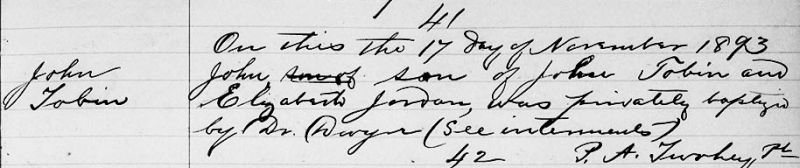 41
On this the 17 day of November 1893
John Tobin
John, son of son of John Tobin and
Elizabeth Jordan, was privately baptized
by Dr. Dwyer (See interments)
42 P. A. Twohey, Pt